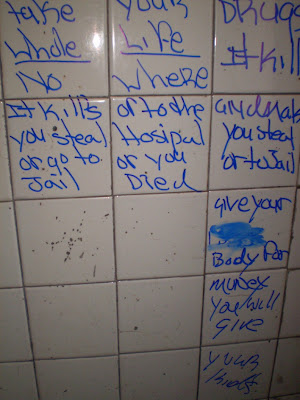 take your
whole Life
No where
Drugs
It kill
It kills
you steal
or go to
Jail
or to the
Hosipal
or you
Died
and make
you steal
or to Jail
give your
Body for
money
You will
Give
your